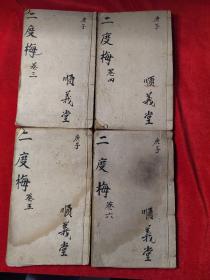 庚子
二度梅
卷三
順義堂
庚子
二度梅
卷四
順義堂
庚子
二度梅
卷五
順義堂
庚子
二度梅
卷六
順義堂